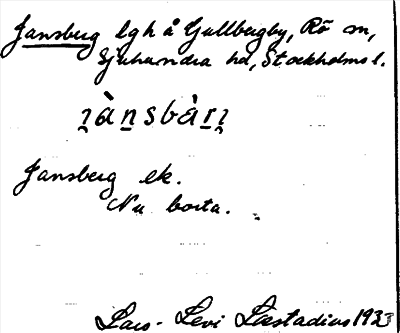 Jansberg lgh å Gullbergby, Rö sn,
Sjuhundra hd, Stockholms l.
Jansberg ek.
Nu borta.
Lars-Levi Læstadius 1933